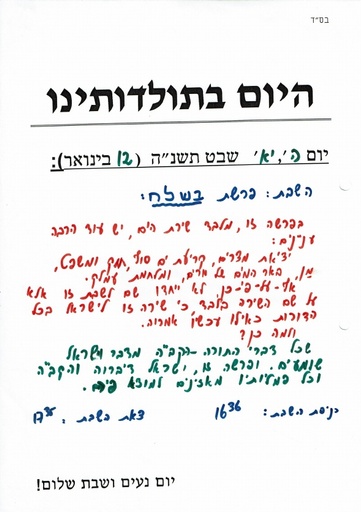 בס״ד
היום בתולדותינו
יום ה׳, י״א׳ שבט תשנ״ה (12 בינואר):
השבת: פרשת בשלח:
בפרשה זו, מלבד שירת הים, יש עוד הרבה
ענינים:
יציאת מצרים, קריעת ים סוף, חוק ומשפט,
מן, באר המים אל מרים, ומלחמת עמלק.
אף-על-פי-כן, לא ייחדו שם לשבת זו אלא
על שם השירה בלבד, כי שירה זו לישראל בכל
הדורות כאילו עכשיו אמרוה.
ולמה כן?
שכל דברי התורה - הקב״ה מדבר וישראל
שומעים. ופרשה זו, ישראל דיברוה והקב״ה
וכל פמליותיו מאזינים למוצא פיהם.
כניסת השבת: 16³⁶ צאת השבת:
יום נעים ושבת שלום!